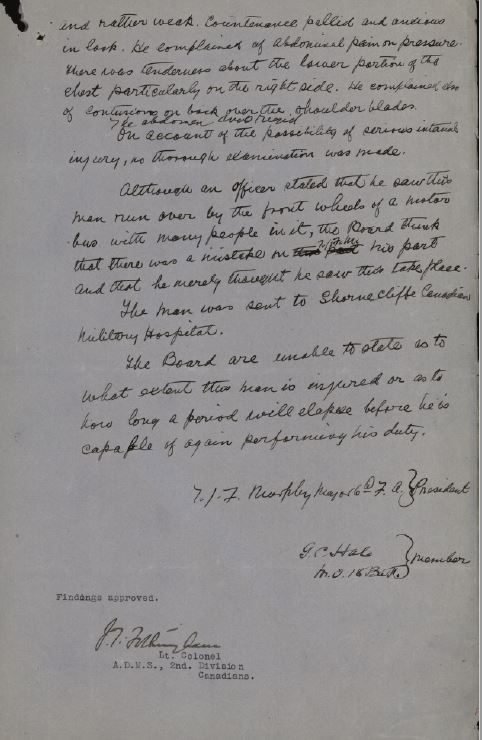 and rather weak. Countenance pallid and anxious
in look. He complained of abdominal pain on pressure.
There was tenderness about the lower portion of the
chest particularly on the right side. He complained also
of contusions on back over the shoulder blades.
The abdomen was rigid
On account of the possibility of serious internal
injury, no thorough examination was made.
Although an officer stated that he saw this
man run over by the front wheels of a motor
bus with many people in it, the Board think
that there was a mistake on his part
and that he merely thought he saw this take place.
The man was sent to Shorncliffe Canadian
Military Hospital.
The Board are unable to state as to
what extent this man is injured or as to
how long a period will elapse before he is
capable of again performing his duty.
T.J.F. Murphy Major 6th F. A. } President
G.C. Hale
M.O. 18 Batt } Member
Findings approved.
Lt. Colonel
A.D.M.S., 2nd. Division
Canadians.